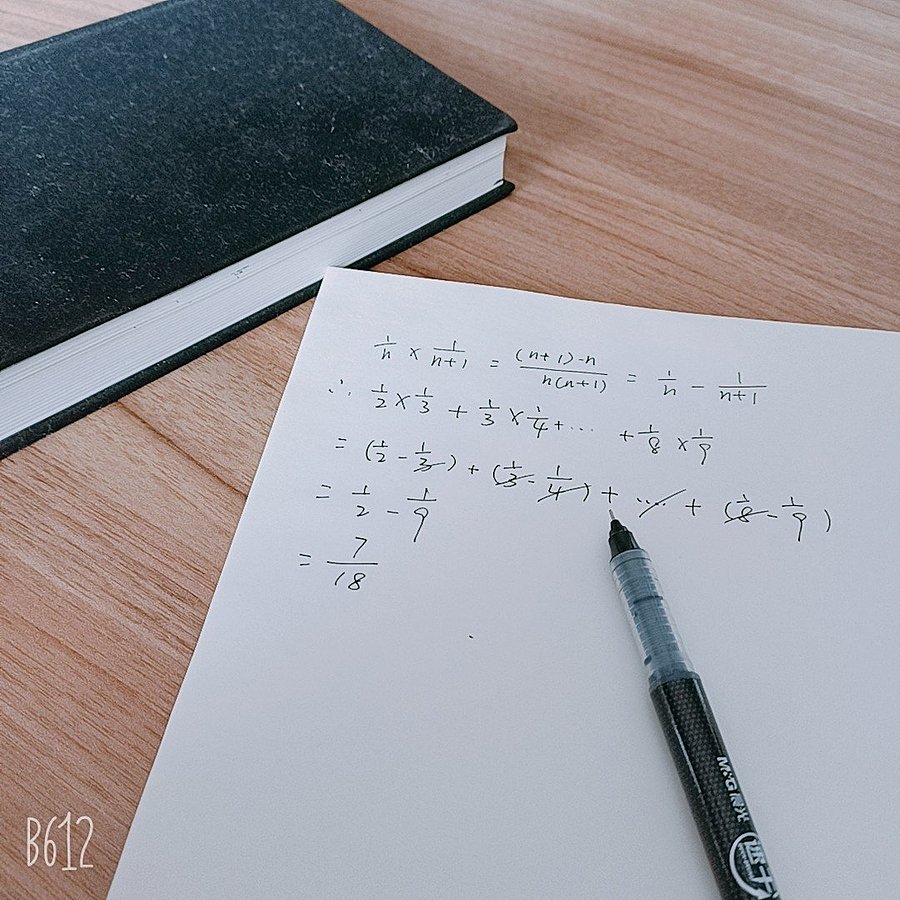 1/n × 1/(n+1) = ((n+1)-n)/(n(n+1)) = 1/n - 1/(n+1)
∴ 1/2 × 1/3 + 1/3 × 1/4 + ... + 1/8 × 1/9
= (1/2 - 1/3) + (1/3 - 1/4) + ... + (1/8 - 1/9)
= 1/2 - 1/9
= 7/18
M&G 晨光
B612